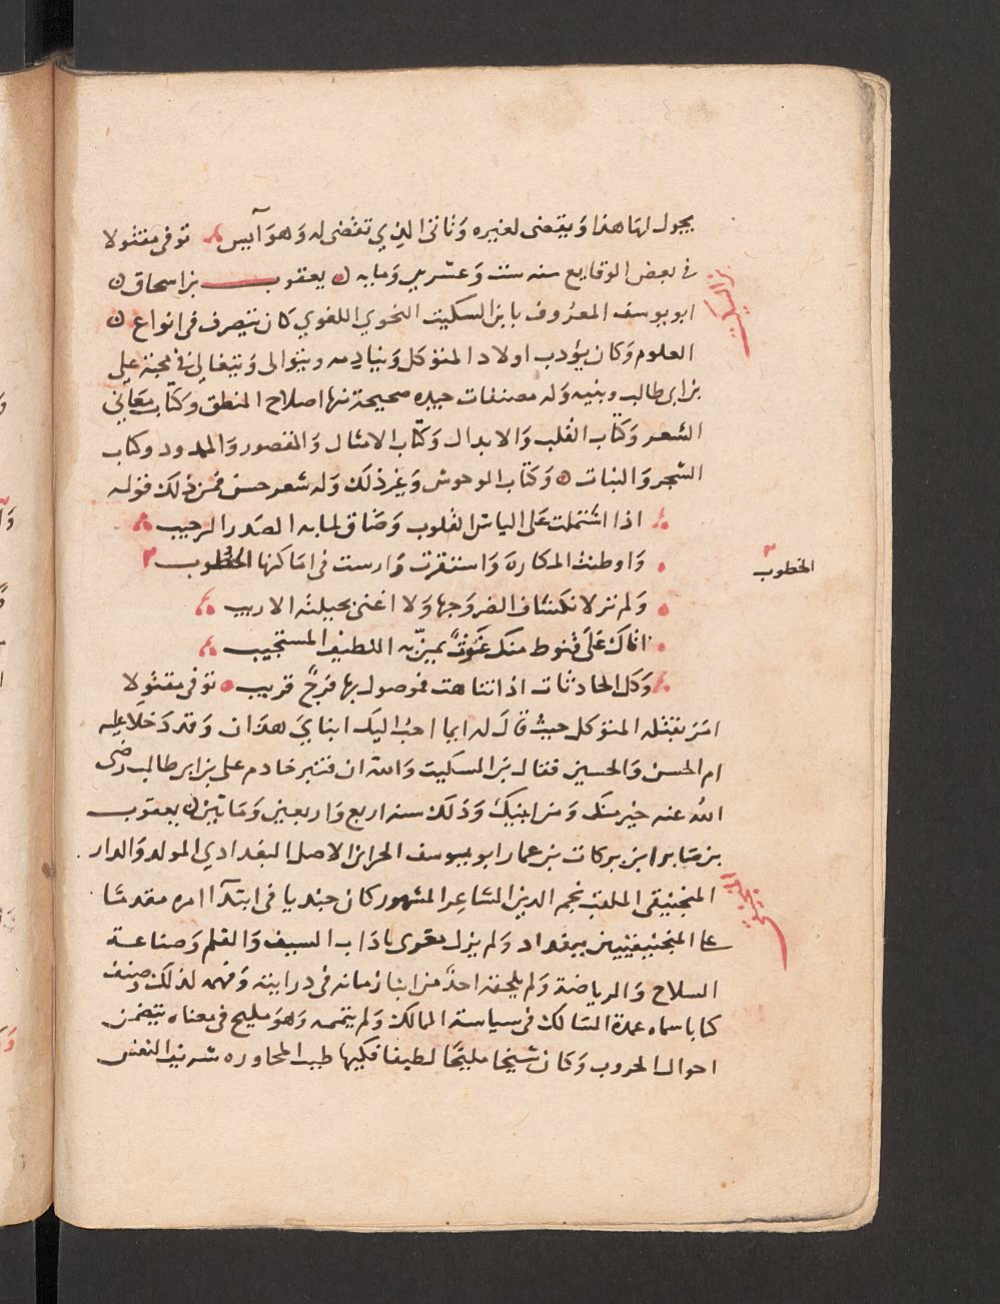 يجول لها هذا ويقضى لغيره وتاتى الذي تقضى له وهو آيس توفى مقتولا
فى بعض الوقايع سنه ست وعشرين ومايه يعقوب بن اسحاق
ابو يوسف المعروف بابن السكيت النحوي اللغوي كان يتصرف فى انواع
العلوم وكان يؤدب اولاد المتوكل وينادمه ويتوالى ويتغالى في محبة على
بن ابى طالب وبنيه وله مصنفات جيده صحيحة منها اصلاح المنطق وكتاب معاني
الشعر وكتاب القلب والابدال وكتاب الامثال والمقصور والممدود وكتاب
الشجر والنبات وكتاب الوحوش وغير ذلك وله شعر حسن فمن ذلك قوله
اذا اشتملت على الياس القلوب وضاق لما به الصدر الرحيب
واوطنت المكاره واستقرت وارست فى اماكنها الخطوب
الخطوب
ولم تر لانكشاف الضر وجها ولا اغنى بحيلته الاريب
اتاك على قنوط منك غوث يمن به اللطيف المستجيب
وكل الحادثات اذا تناهت فموصول بها فرج قريب توفى مقتولا
امر بقتله المتوكل حيث قال له ايما احب اليك ابناي هذان وقد دخلا عليه
ام الحسن والحسين فقال بن السكيت والله ان قنبر خادم على بن ابى طالب رضى
الله عنه خير منك ومن ابنيك وذلك سنه اربع واربعين ومأتين يعقوب
بن صابر ابن بركات بن عمار ابو يوسف الحراني الاصل البغدادي المولد والدار
المنجنيقى الملقب نجم الدين الشاعر المشهور كان جنديا فى ابتدآ امره مقدما
على المنجنيقيين ببغداد ولم يزل مغرى باداب السيف والقلم وصناعة
السلاح والرياضة ولم يلحقه احد من ابنا زمانه فى درايته وفهمه لذلك وصنف
كتابا سماه عمدة السالك فى سياسة الممالك ولم يتممه وهو مليح فى معناه يتضمن
احوال الحروب وكان شيخا مليحا لطيفا فكيها طيب المحاوره شريف النفس
بن السكيت
المنجنيقى